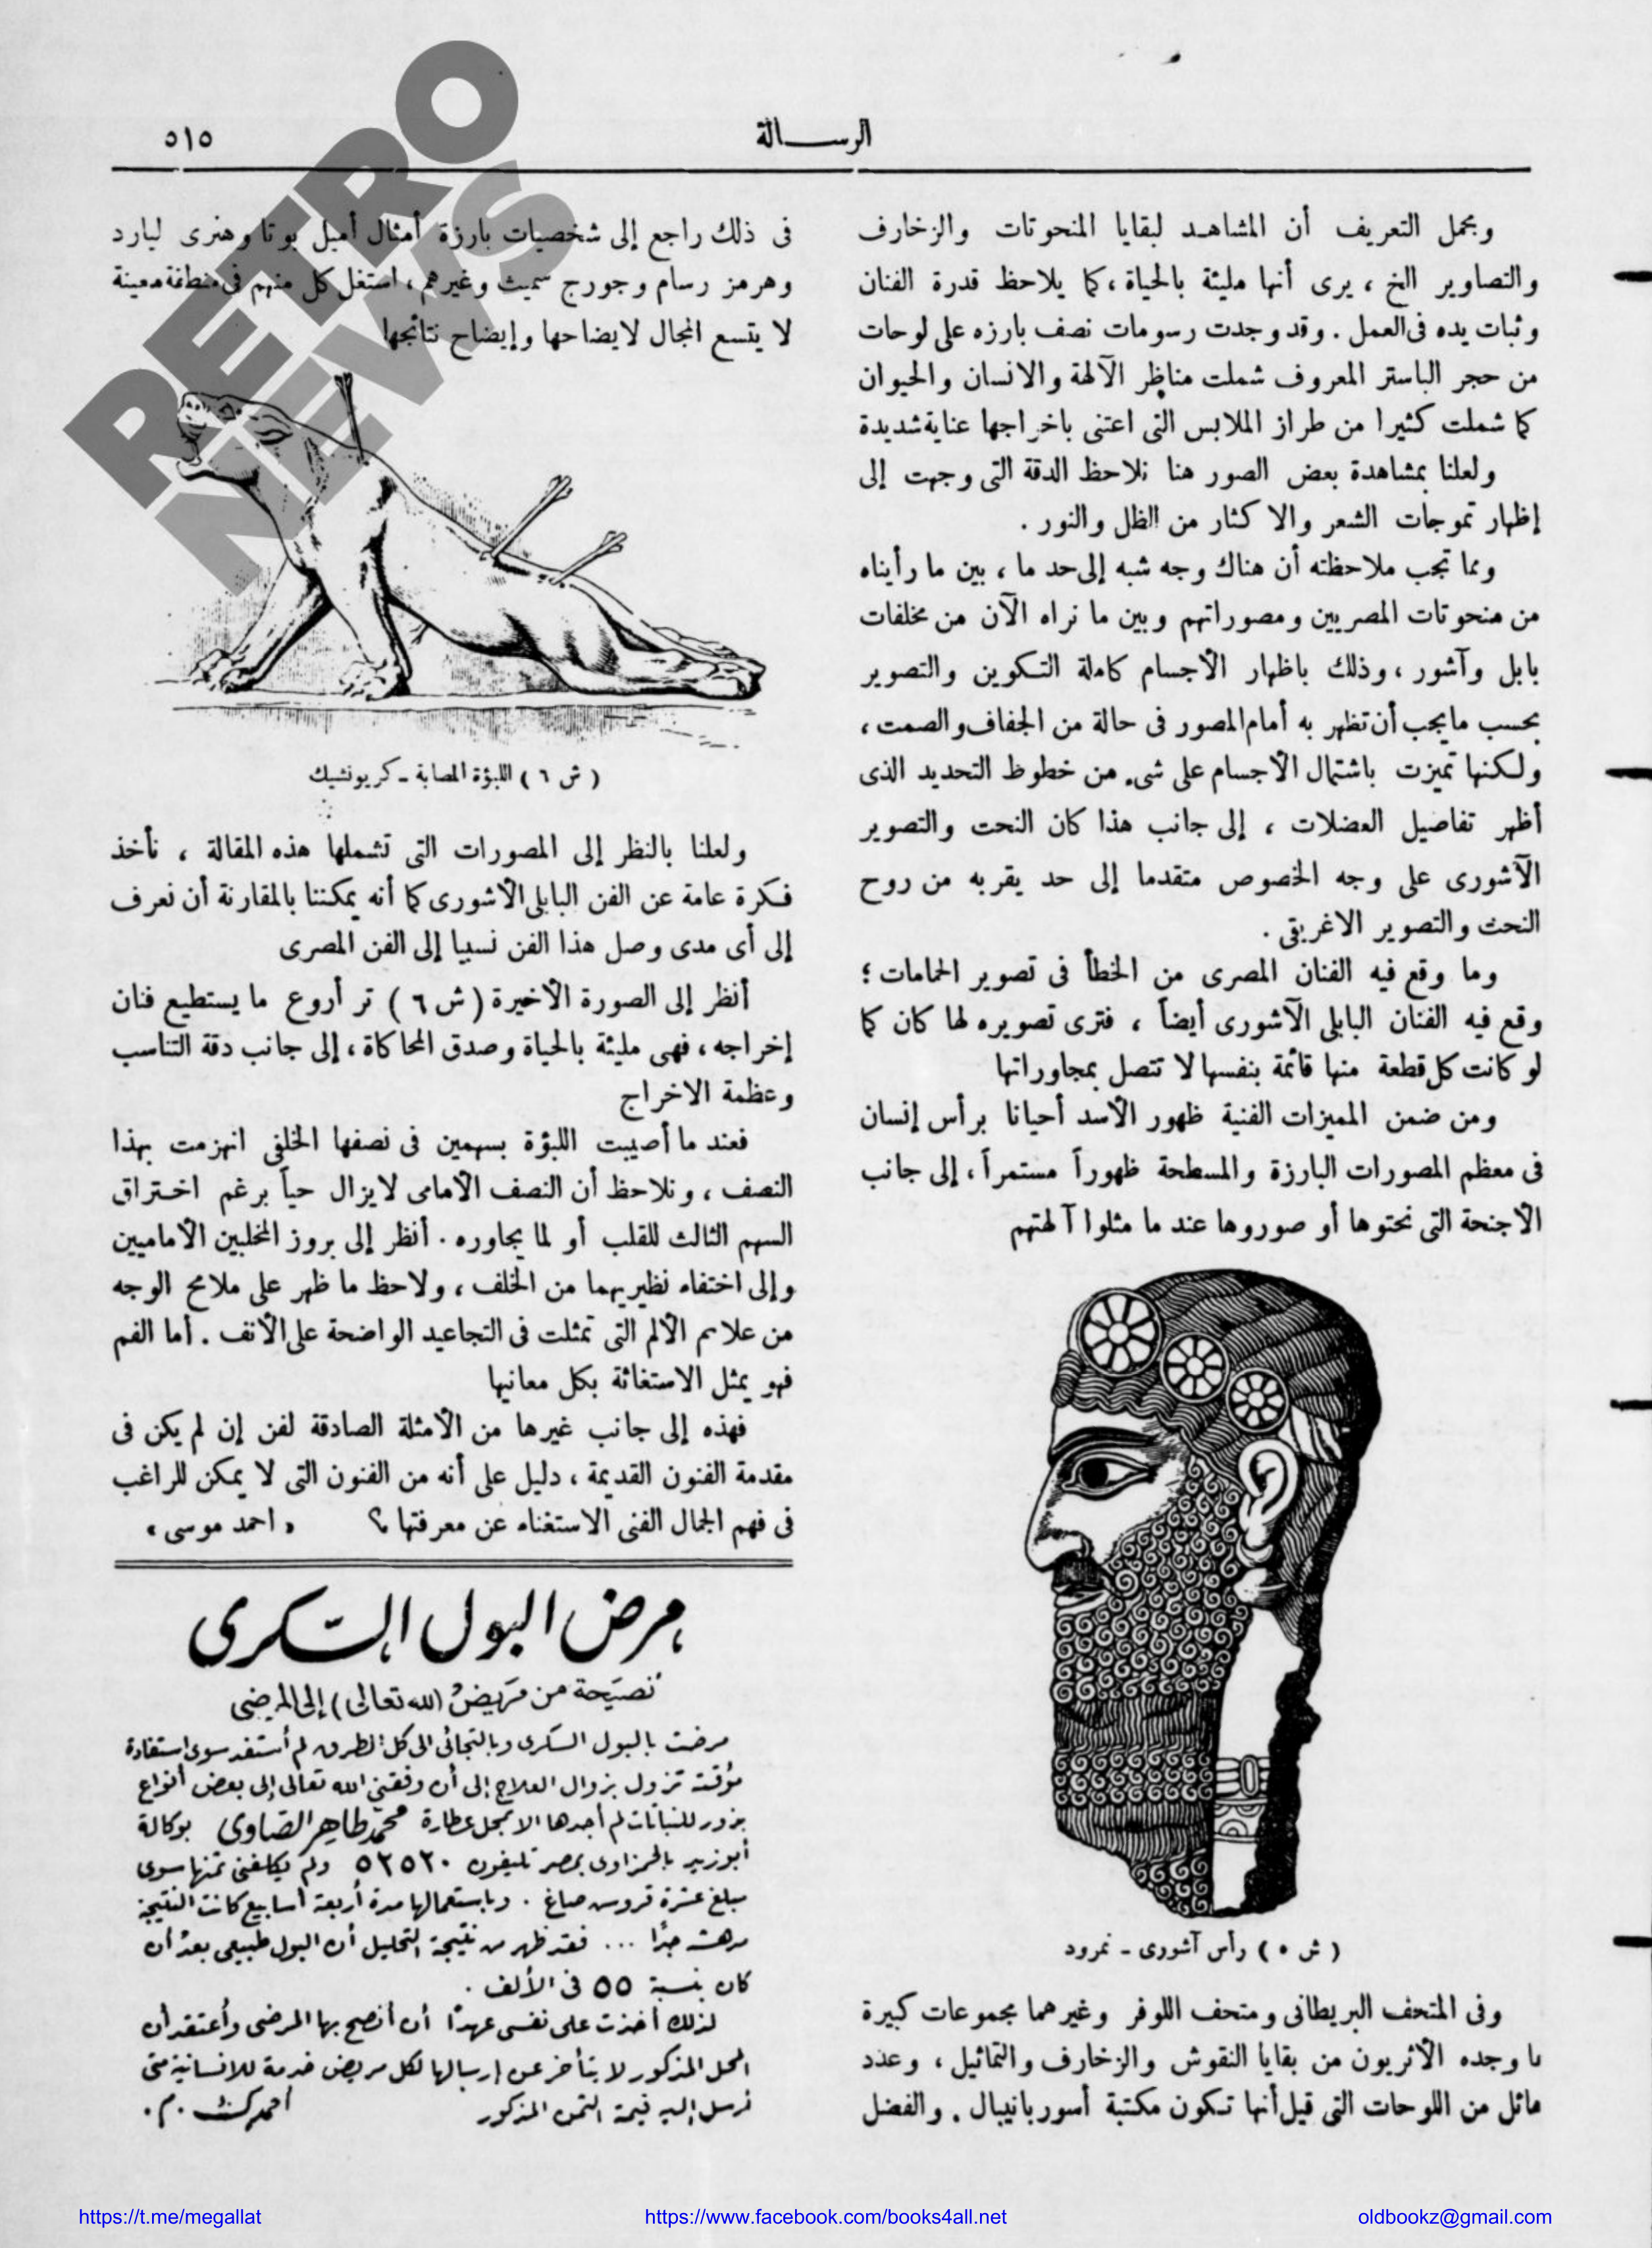 الرسالة
٥١٥
ومجمل التعريف أن المشاهد لبقايا المنحوتات والزخارف
والتصاوير الخ ، يرى أنها مليئة بالحياة ، كما يلاحظ قدرة الفنان
وثبات يده فى العمل . وقد وجدت رسومات نصف بارزه على لوحات
من حجر الباستر المعروف شملت مناظر الآلهة والانسان والحيوان
كما شملت كثيرا من طراز الملابس التى اعتنى باخراجها عناية شديدة
ولعلنا بمشاهدة بعض الصور هنا نلاحظ الدقة التى وجهت إلى
إظهار تموجات الشعر والا كثار من الظل والنور .
ومما تجب ملاحظته أن هناك وجه شبه إلى حد ما ، بين ما رأيناه
من منحوتات المصريين ومصوراتهم وبين ما نراه الآن من مخلفات
بابل وآشور ، وذلك باظهار الأجسام كاملة التكوين والتصوير
بحسب ما يجب أن تظهر به أمام المصور فى حالة من الجفاف والصمت ،
ولكنها تميزت باشتمال الأجسام على شىء من خطوط التحديد الذى
أظهر تفاصيل العضلات ، إلى جانب هذا كان النحت والتصوير
الآشورى على وجه الخصوص متقدما إلى حد يقربه من روح
النحت والتصوير الاغريقى .
وما وقع فيه الفنان المصرى من الخطأ فى تصوير الحمامات ؛
وقع فيه الفنان البابلى الآشورى أيضاً ، فترى تصويره لها كان كما
لو كانت كل قطعة منها قائمة بنفسها لا تتصل بمجاوراتها
ومن ضمن المميزات الفنية ظهور الأسد أحيانا برأس إنسان
فى معظم المصورات البارزة والمسطحة ظهوراً مستمراً ، إلى جانب
الأجنحة التى نحتوها أو صوروها عند ما مثلوا آلهتهم
( ش ٥ ) رأس آشورى - نمرود
وفى المتحف البريطانى ومتحف اللوفر وغيرهما مجموعات كبيرة
مما وجده الأثريون من بقايا النقوش والزخارف والتماثيل ، وعدد
هائل من اللوحات التى قيل أنها تكون مكتبة أسوربانيبال . والفضل
فى ذلك راجع إلى شخصيات بارزة أمثال أميل بوتا وهنرى ليارد
وهرمز رسام وجورج سميث وغيرهم ، استغل كل منهم فى منطقة معينة
لا يتسع المجال لايضاحها وإيضاح نتائجها
( ش ٦ ) اللبؤة المصابة - كريونشيك
ولعلنا بالنظر إلى المصورات التى تشملها هذه المقالة ، نأخذ
فكرة عامة عن الفن البابلى الأشورى كما أنه يمكننا بالمقارنة أن نعرف
إلى أى مدى وصل هذا الفن نسبيا إلى الفن المصرى
أنظر إلى الصورة الأخيرة ( ش ٦ ) تر أروع ما يستطيع فنان
إخراجه ، فهى مليئة بالحياة وصدق المحاكاة ، إلى جانب دقة التناسب
وعظمة الاخراج
فعند ما أصيبت اللبؤة بسهمين فى نصفها الخلفى انهزمت بهذا
النصف ، ونلاحظ أن النصف الأمامى لا يزال حياً برغم اختراق
السهم الثالث للقلب أو لما يجاوره . أنظر إلى بروز المخلبين الأماميين
وإلى اختفاء نظيريهما من الخلف ، ولاحظ ما ظهر على ملامح الوجه
من علاىم الألم التى تمثلت فى التجاعيد الواضحة على الأنف . أما الفم
فهو يمثل الاستغاثة بكل معانيها
فهذه إلى جانب غيرها من الأمثلة الصادقة لفن إن لم يكن فى
مقدمة الفنون القديمة ، دليل على أنه من الفنون التى لا يمكن للراغب
فى فهم الجمال الفنى الاستغناء عن معرفتها ؟ « احمد موسى »
مرض البول السكرى
نصيحة من مريض (لله تعالى) إلى المرضى
مرضت بالبول السكرى وبالتجائى الى كل الطرق لم أستفد سوى استفادة
مؤقتة تزول بزوال العلاج إلى أن وفقنى الله تعالى إلى بعض أنواع
بذور للنباتات لم أجدها الا بمحل عطارة محمد طاهر الصاوى بوكالة
أبوزيد بالحمزاوى بمصر تليفون ٥٢٥٢٠ ولم يكلفنى ثمنها سوى
مبلغ عشرة قروش صاغ . وباستعمالها مدة أربعة أسابيع كانت النتيجة
مدهشة جدًا ... فقد ظهر من نتيجة التحليل أن البول طبيعى بعد أن
كان بنسبة ٥٥ فى الألف .
لذلك أخذت على نفسى عهدًا أن أنصح بها المرضى وأعتقد أن
المحل المذكور لا يتأخر عن إرسالها لكل مريض خدمة للانسانية متى
أرسل إليه قيمة الثمن المذكور
RETRO
NEWS
https://t.me/megallat
https://www.facebook.com/books4all.net
oldbookz@gmail.com